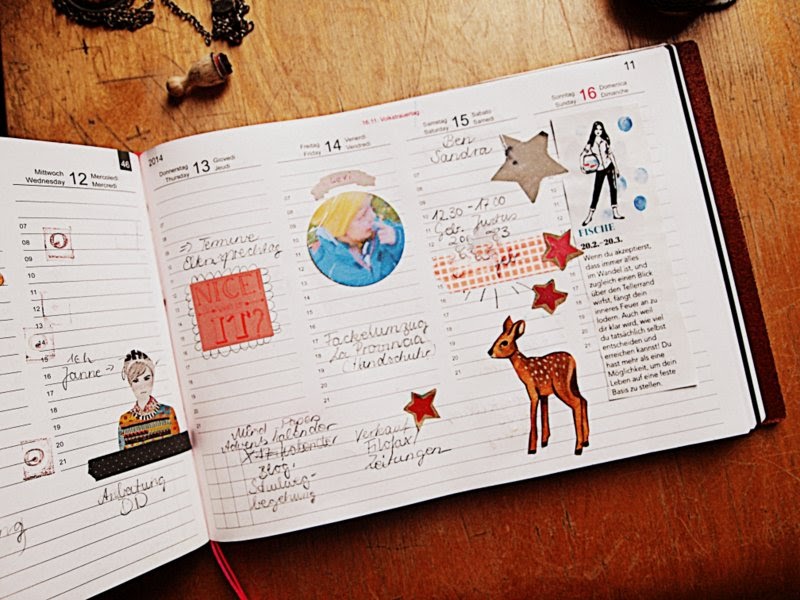 46
Mittwoch
Wednesday
12
Mercoledì
Mercredi
07
08
09
10
11
12
13
14
15
16h
Janne →
16
17
18
19
20
21
Anbetung
DD
2014
Donnerstag
Thursday
13
Giovedì
Jeudi
⇒ Termine
Elternsprechtag
NICE
IT?
Mind
Adventskalender
Blog,
Schulweg-
begehung
16.11. Volkstrauertag
Freitag
Friday
14
Venerdì
Vendredi
Fackelumzug
La Provincia
(Handschuhe)
Verkauf
Filofax/
Zeitungen
Samstag
Saturday
15
Sabato
Samedi
Ben
Sandra
12.30 - 17.00
Geb. Justus
11
Sonntag
Sunday
16
Domenica
Dimanche
FISCHE
20.2.–20.3.
Wenn du akzeptierst,
dass immer alles
im Wandel ist, und
zugleich einen Blick
über den Tellerrand
wirfst, fängt dein
inneres Feuer an zu
lodern. Auch weil
dir klar wird, wie viel
du tatsächlich selbst
entscheiden und
erreichen kannst! Du
hast mehr als eine
Möglichkeit, um dein
Leben auf eine feste
Basis zu stellen.